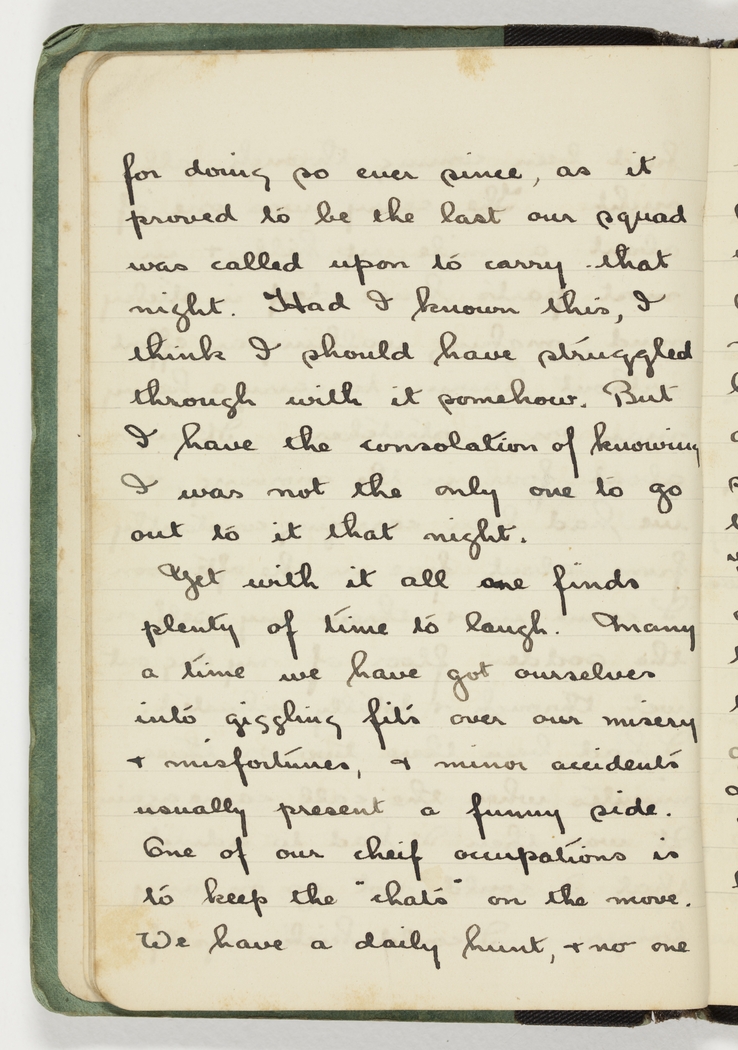 for doing so ever since, as it
proved to be the last our squad
was called upon to carry that
night. Had I known this, I
think I should have struggled
through with it somehow. But
I have the consolation of knowing
I was not the only one to go
out to it that night.
Yet with it all one finds
plenty of time to laugh. Many
a time we have got ourselves
into giggling fits over our misery
& misfortunes, & minor accidents
usually present a funny side.
One of our cheif occupations is
to keep the "chats" on the move.
We have a daily hunt, & no one